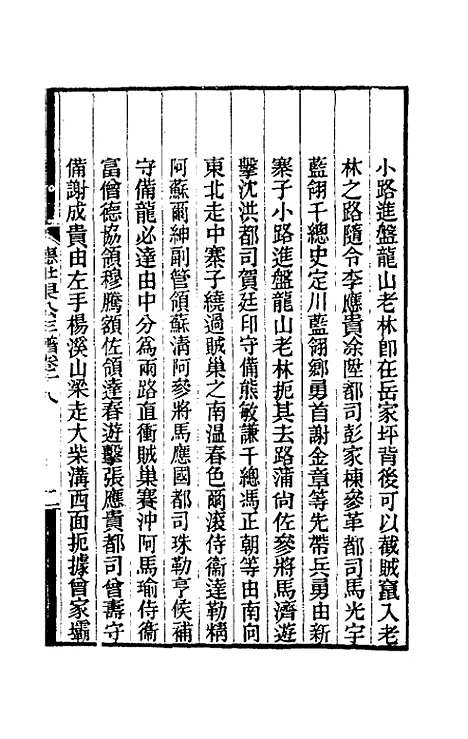 小路進盤龍山老林卽在岳家坪背後可以截賊竄入老
林之路隨令李應貴涂陞都司彭家棟參革都司馬光宇
藍翎千總史定川藍翎鄉勇首謝金章等先帶兵勇由新
寨子小路進盤龍山老林扼其去路蒲尙佐參將馬濟遊
擊沈洪都司賀廷印守備熊敏謙千總馮正朝等由南向
東北走中寨子繞過賊巢之南溫春色爾滾侍衞達勒精
阿蘇爾紳副管領蘇淸阿參將馬應國都司珠勒亨侯補
守備龍必達由中分爲兩路直衝賊巢賽沖阿馬瑜侍衞
富僧德協領穆騰額佐領達春遊擊張應貴都司曾壽守
備謝成貴由左手楊溪山梁走大柴溝西面扼據曾家壩